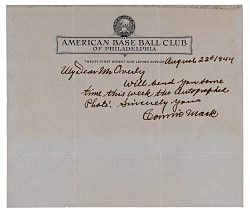 AMERICAN BASE BALL CLUB
OF PHILADELPHIA
TWENTY-FIRST STREET AND LEHIGH AVENUE
August 22d 1944
My Dear Mr Overly
Will send you some
time this week the Autographed
Photo. Sincerely yours
Connie Mack